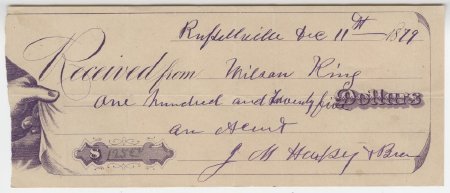 Russellville Dec 11th 1879
Received from Wilson King
One Hundred and Twenty five Dollars
on Acount
$ 125.00
J M & Bro